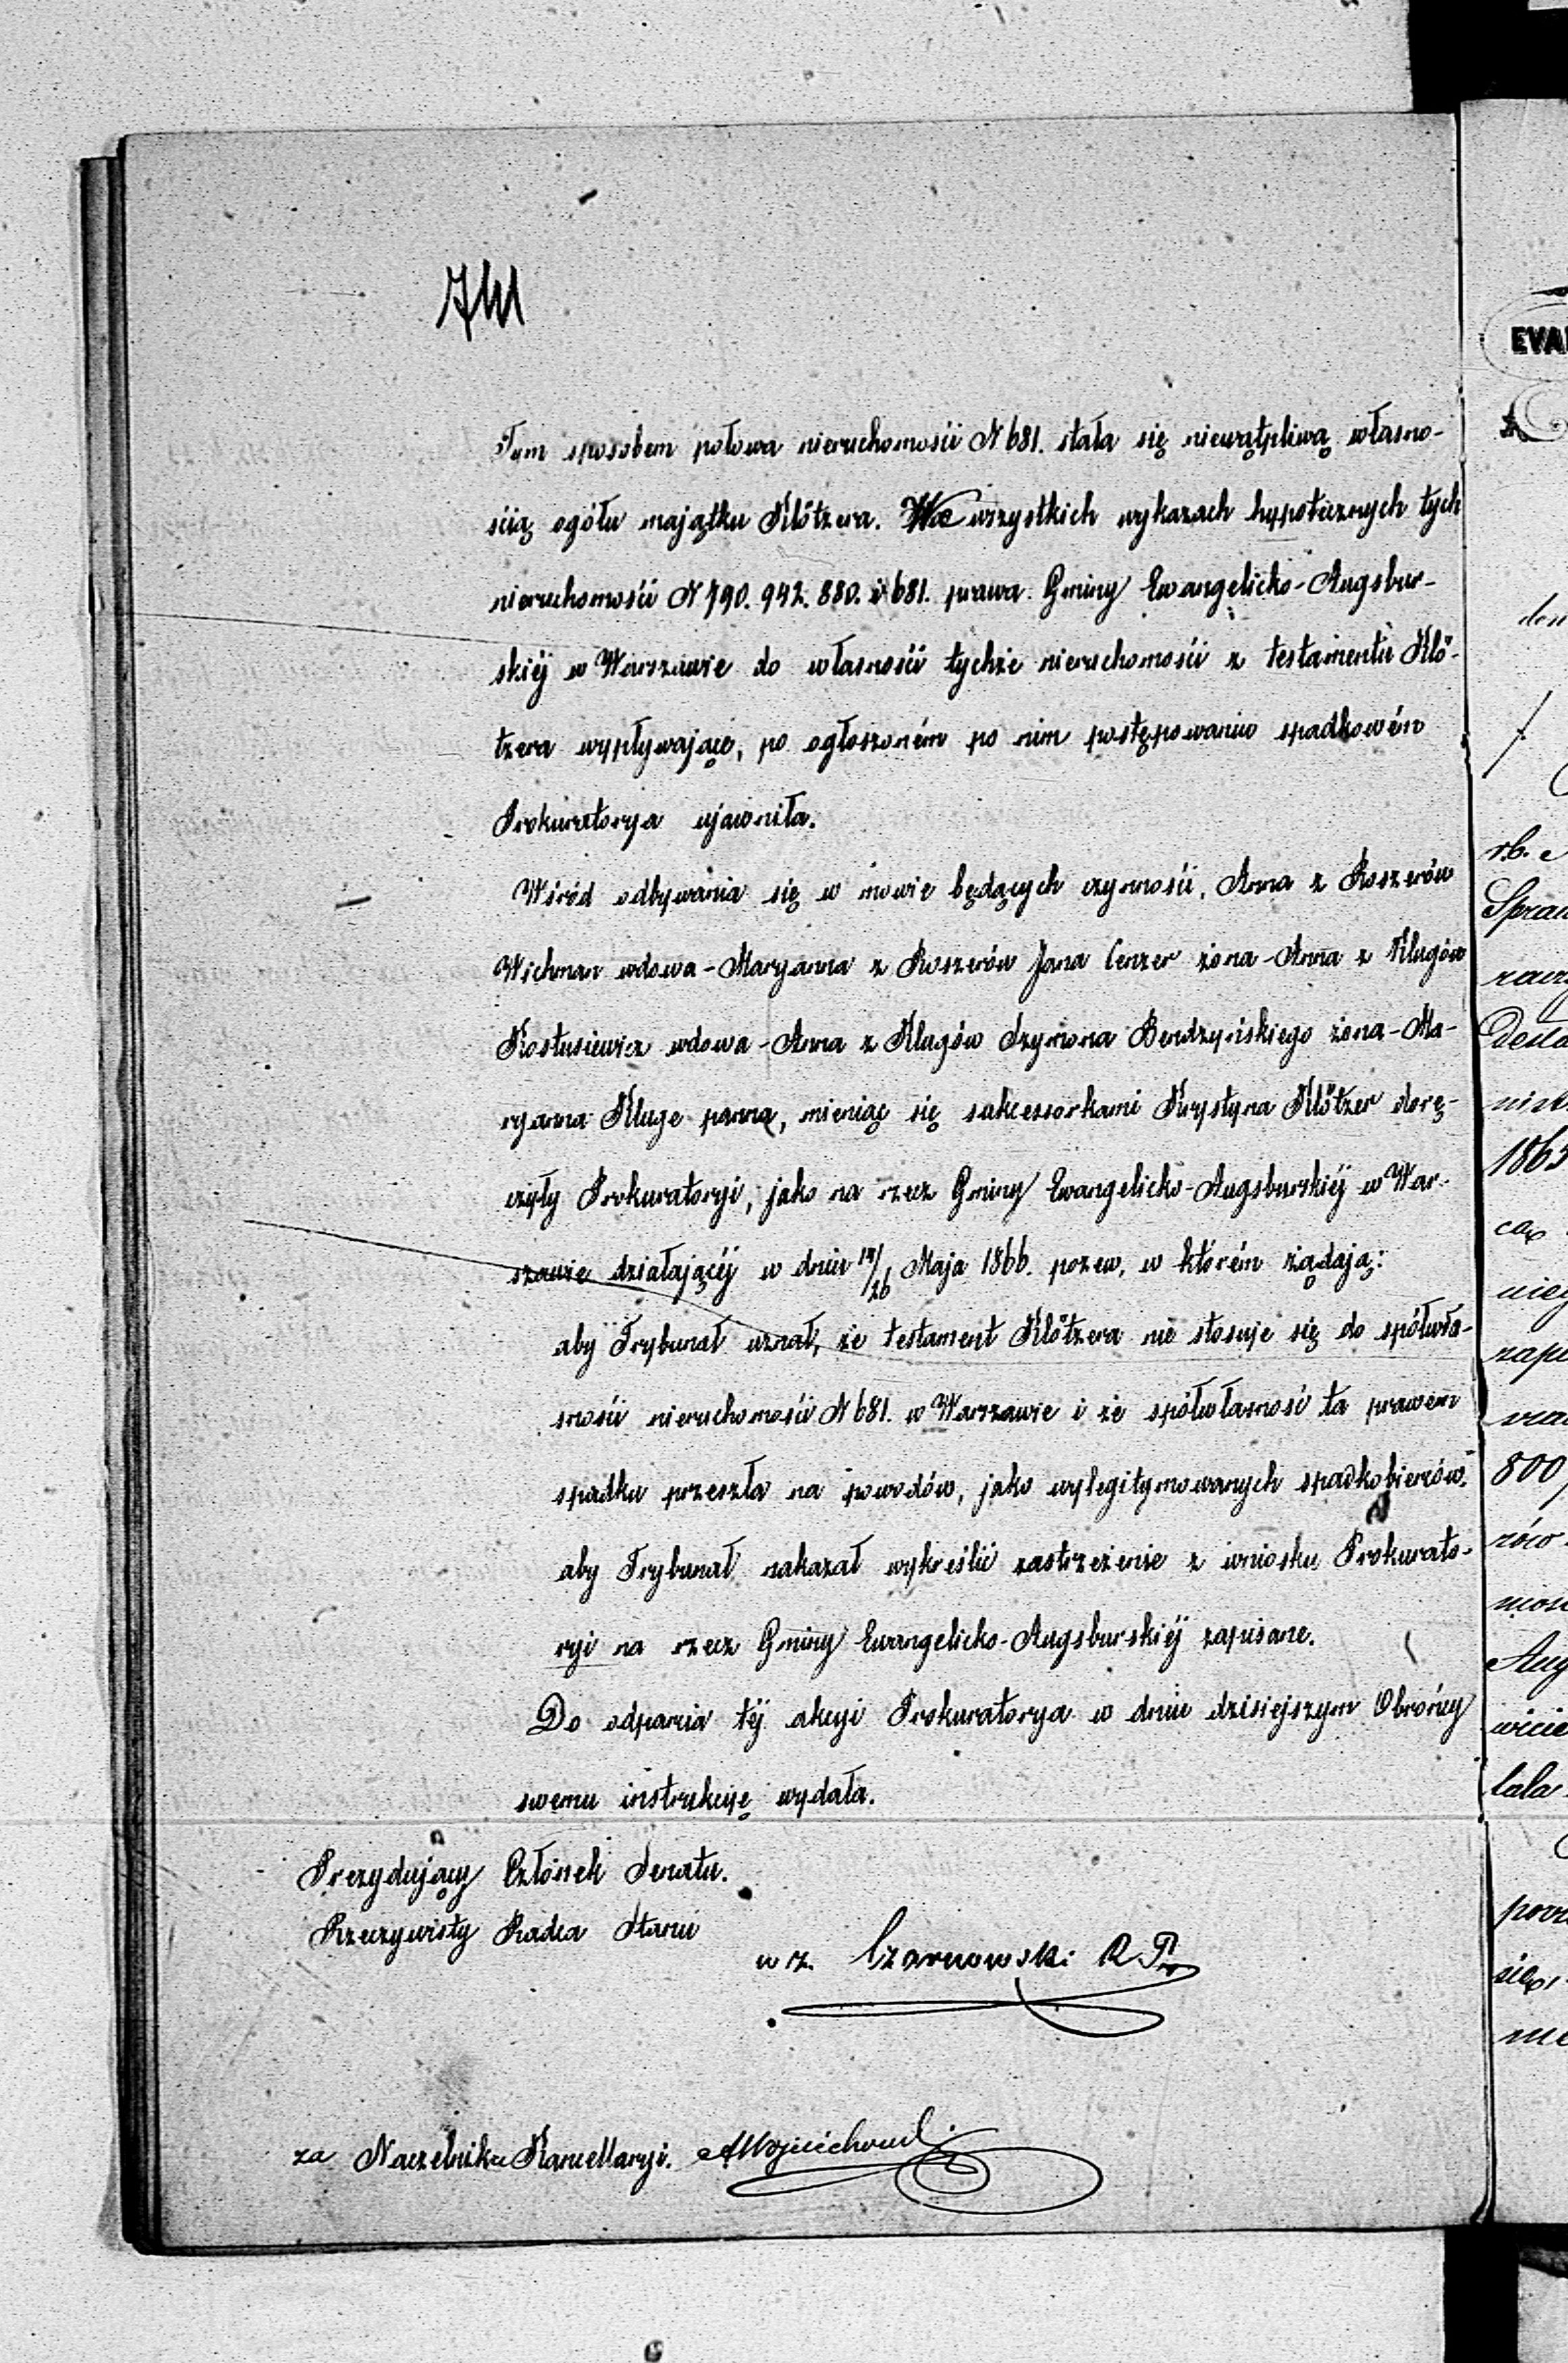 Tym sposobem połowa nieruchomości N 681. stała się niewątpliwą własno-
ścią ogółu majątku Klötzera. We wszystkich wykazach hypotecznych tych
nieruchomości N 790. 942. 880. i 681. prawa Gminy Ewangelicko-Augsbur-
skiéj w Warszawie do własności tychże nieruchomości z testamentu Klö-
tzera wypływające, po ogłoszoném po nim postępowaniu spadkowém
Prokuratorya ujawniła.
Wśród odbywania się w mowie będących czynności, Anna z Roszerów
Wichman wdowa - Maryanna z Roszerów Jana Cenzer żona - Anna z Klugów
Kostusiewicz wdowa - Anna z Klugów Szymona Bendzyńskiego żona - Ma-
ryanna Kluge panna, mieniąc się sukcessorkami Krystyna Klötzer dorę-
czyły Prokuratoryi, jako na rzecz Gminy Ewangelicko-Augsburskiéj w War-
szawie działającéj w dniu 14/26 Maja 1866. pozew, w którém żądają:
aby Trybunał uznał, że testament Klötzera nie stosuje się do spółwła-
sności nieruchomości N 681. w Warszawie i że spółwłasność ta prawem
spadku przeszła na powodów, jako wylegitymowanych spadkobierców.
aby Trybunał nakazał wykreślić zastrzeżenie z wniosku Prokurato-
ryi na rzecz Gminy Ewangelicko-Augsburskiéj zapisane.
Do odparcia téj akcyi Prokuratorya w dniu dzisiejszym Obrońcy
swemu instrukcyę wydała.
Prezydujący Członek Senatu.
Rzeczywisty Radca Stanu
w z. Czarnowski R. Pr
za Naczelnika Kancellaryi. A Wojciechowsk
EVA
den
rb. e
Spraw
nisk
1865
cap
nieg
zapi
800
rów
Aug
wicie
lala
się,